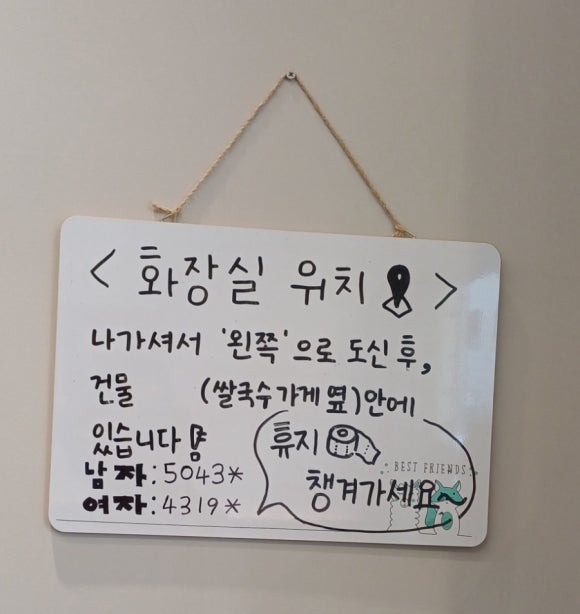 < 화장실 위치 >
나가셔서 '왼쪽'으로 도신 후,
건물 (쌀국수가게 옆)안에
있습니다
남자:5043*
여자:4319*
휴지
챙겨가세요~
BEST FRIENDS